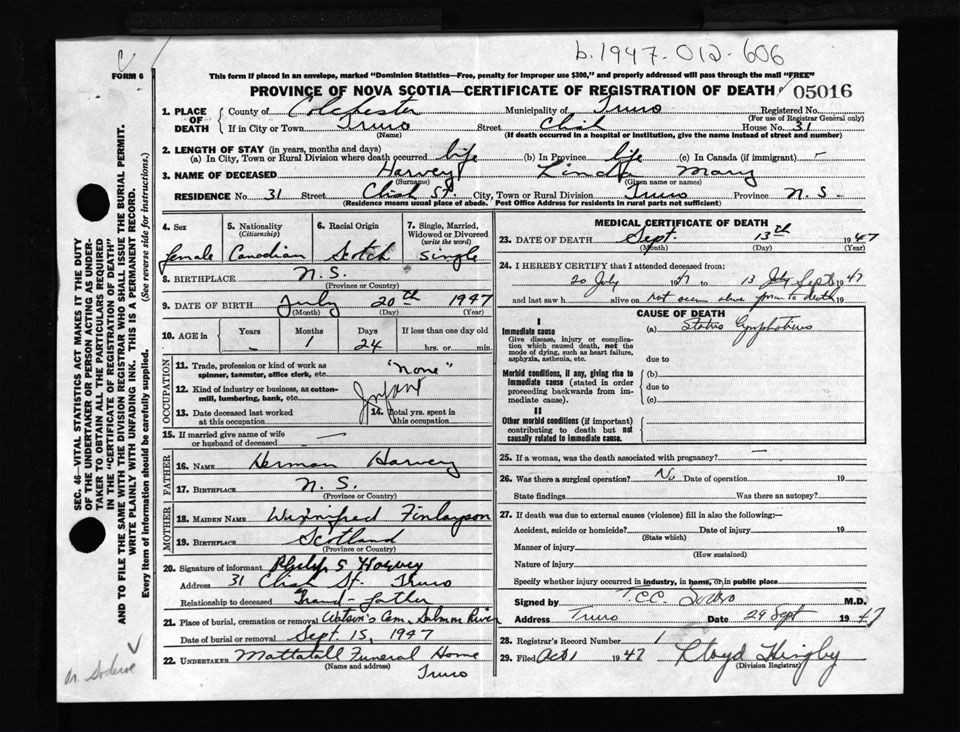 b. 1947-012-606
FORM 6
This form if placed in an envelope, marked "Dominion Statistics—Free, penalty for improper use $300," and properly addressed will pass through the mail "FREE"
PROVINCE OF NOVA SCOTIA—CERTIFICATE OF REGISTRATION OF DEATH 05016
1. PLACE OF DEATH County of Colchester Municipality of Truro Registered No.
(For use of Registrar General only)
If in City or Town Truro Street House No. 31
(Name) (If death occurred in a hospital or institution, give the name instead of street and number)
2. LENGTH OF STAY (in years, months and days)
(a) In City, Town or Rural Division where death occurred life (b) In Province life (c) In Canada (if immigrant) -
3. NAME OF DECEASED Harvey Linda Mary
(Surname) (Given name or names)
RESIDENCE No. 31 Street St. City, Town or Rural Division Truro Province N.S.
(Residence means usual place of abode. Post Office Address for residents in rural parts not sufficient)
SEC. 46—VITAL STATISTICS ACT MAKES IT THE DUTY
OF THE UNDERTAKER OR PERSON ACTING AS UNDER-
TAKER TO OBTAIN ALL THE PARTICULARS REQUIRED
IN THE "CERTIFICATE OF REGISTRATION OF DEATH"
AND TO FILE THE SAME WITH THE DIVISION REGISTRAR WHO SHALL ISSUE THE BURIAL PERMIT.
WRITE PLAINLY WITH UNFADING INK. THIS IS A PERMANENT RECORD.
Every item of information should be carefully supplied. (See reverse side for instructions.)
4. Sex 5. Nationality (Citizenship) 6. Racial Origin 7. Single, Married, Widowed or Divorced (write the word)
female Canadian Scotch single
8. BIRTHPLACE N.S.
(Province or Country)
9. DATE OF BIRTH July 20th 1947
(Month) (Day) (Year)
10. AGE in Years Months Days If less than one day old
- 1 24 hrs. or min.
OCCUPATION
11. Trade, profession or kind of work as spinner, teamster, office clerk, etc. "none"
12. Kind of industry or business, as cotton-mill, lumbering, bank, etc. Infant
13. Date deceased last worked at this occupation 14. Total yrs. spent in this occupation
15. If married give name of wife or husband of deceased —
FATHER
16. NAME Herman Harvey
17. BIRTHPLACE N.S.
(Province or Country)
MOTHER
18. MAIDEN NAME Winnifred Finlayson
19. BIRTHPLACE Scotland
(Province or Country)
20. Signature of informant Philip S Harvey
Address 31 St. Truro
Relationship to deceased Grand-father
21. Place of burial, cremation or removal Watson's Cem. Salmon River
Date of burial or removal Sept. 15, 1947
22. UNDERTAKER Mattatall Funeral Home
(Name and address) Truro
MEDICAL CERTIFICATE OF DEATH
23. DATE OF DEATH Sept. 13th 1947
(Month) (Day) (Year)
24. I HEREBY CERTIFY that I attended deceased from:
20 July 1947 to 13 July Sept 1947
and last saw h alive on not seen alive prior to death 19
CAUSE OF DEATH
I
Immediate cause (a) Status Lymphaticus
Give disease, injury or complica-
tion which caused death, not the
mode of dying, such as heart failure,
asphyxia, asthenia, etc. due to
Morbid conditions, if any, giving rise to (b)
immediate cause (stated in order
proceeding backwards from im- due to
mediate cause). (c)
II
Other morbid conditions (if important)
contributing to death but not
causally related to immediate cause.
25. If a woman, was the death associated with pregnancy? —
26. Was there a surgical operation? No Date of operation 19
State findings Was there an autopsy?
27. If death was due to external causes (violence) fill in also the following:—
Accident, suicide or homicide? Date of injury 19
(State which)
Manner of injury
(How sustained)
Nature of injury
Specify whether injury occurred in industry, in home, or in public place
Signed by M.D.
Address Truro Date 29 Sept 1947
28. Registrar's Record Number 1
29. Filed Oct 1 1947 Lloyd
(Division Registrar)